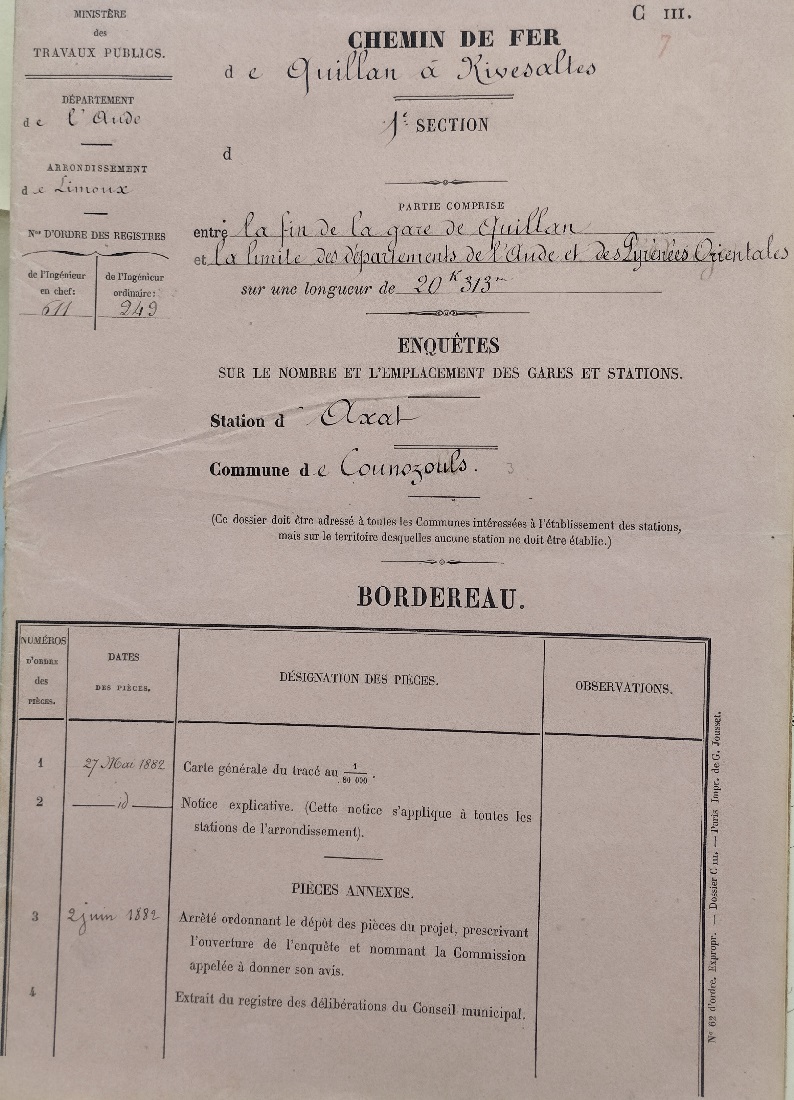 MINISTÈRE
des
TRAVAUX PUBLICS.
DÉPARTEMENT
de l'Aude
ARRONDISSEMENT
de Limoux
Nos D'ORDRE DES REGISTRES
de l'Ingénieur
en chef:
611
de l'Ingénieur
ordinaire:
249
C III.
7
CHEMIN DE FER
de Quillan à Rivesaltes
1e SECTION
d
PARTIE COMPRISE
entre la fin de la gare de Quillan
et la limite des départements de l'Aude et des Pyrénées Orientales
sur une longueur de 20K 313m
ENQUÊTES
SUR LE NOMBRE ET L'EMPLACEMENT DES GARES ET STATIONS.
Station d'Axat
Commune de Counozouls.
3
(Ce dossier doit être adressé à toutes les Communes intéressées à l'établissement des stations,
mais sur le territoire desquelles aucune station ne doit être établie.)
BORDEREAU.
NUMÉROS
D'ORDRE
des
PIÈCES.
DATES
DES PIÈCES.
DÉSIGNATION DES PIÈCES.
OBSERVATIONS.
1 27 Mai 1882 Carte générale du tracé au 1/80 000.
2 id Notice explicative. (Cette notice s'applique à toutes les
stations de l'arrondissement).
PIÈCES ANNEXES.
3 2 juin 1882 Arrêté ordonnant le dépôt des pièces du projet, prescrivant
l'ouverture de l'enquête et nommant la Commission
appelée à donner son avis.
4 Extrait du registre des délibérations du Conseil municipal.
No 62 d'ordre. Expropr. — Dossier C III. — Paris Impr. de G. Jousset.